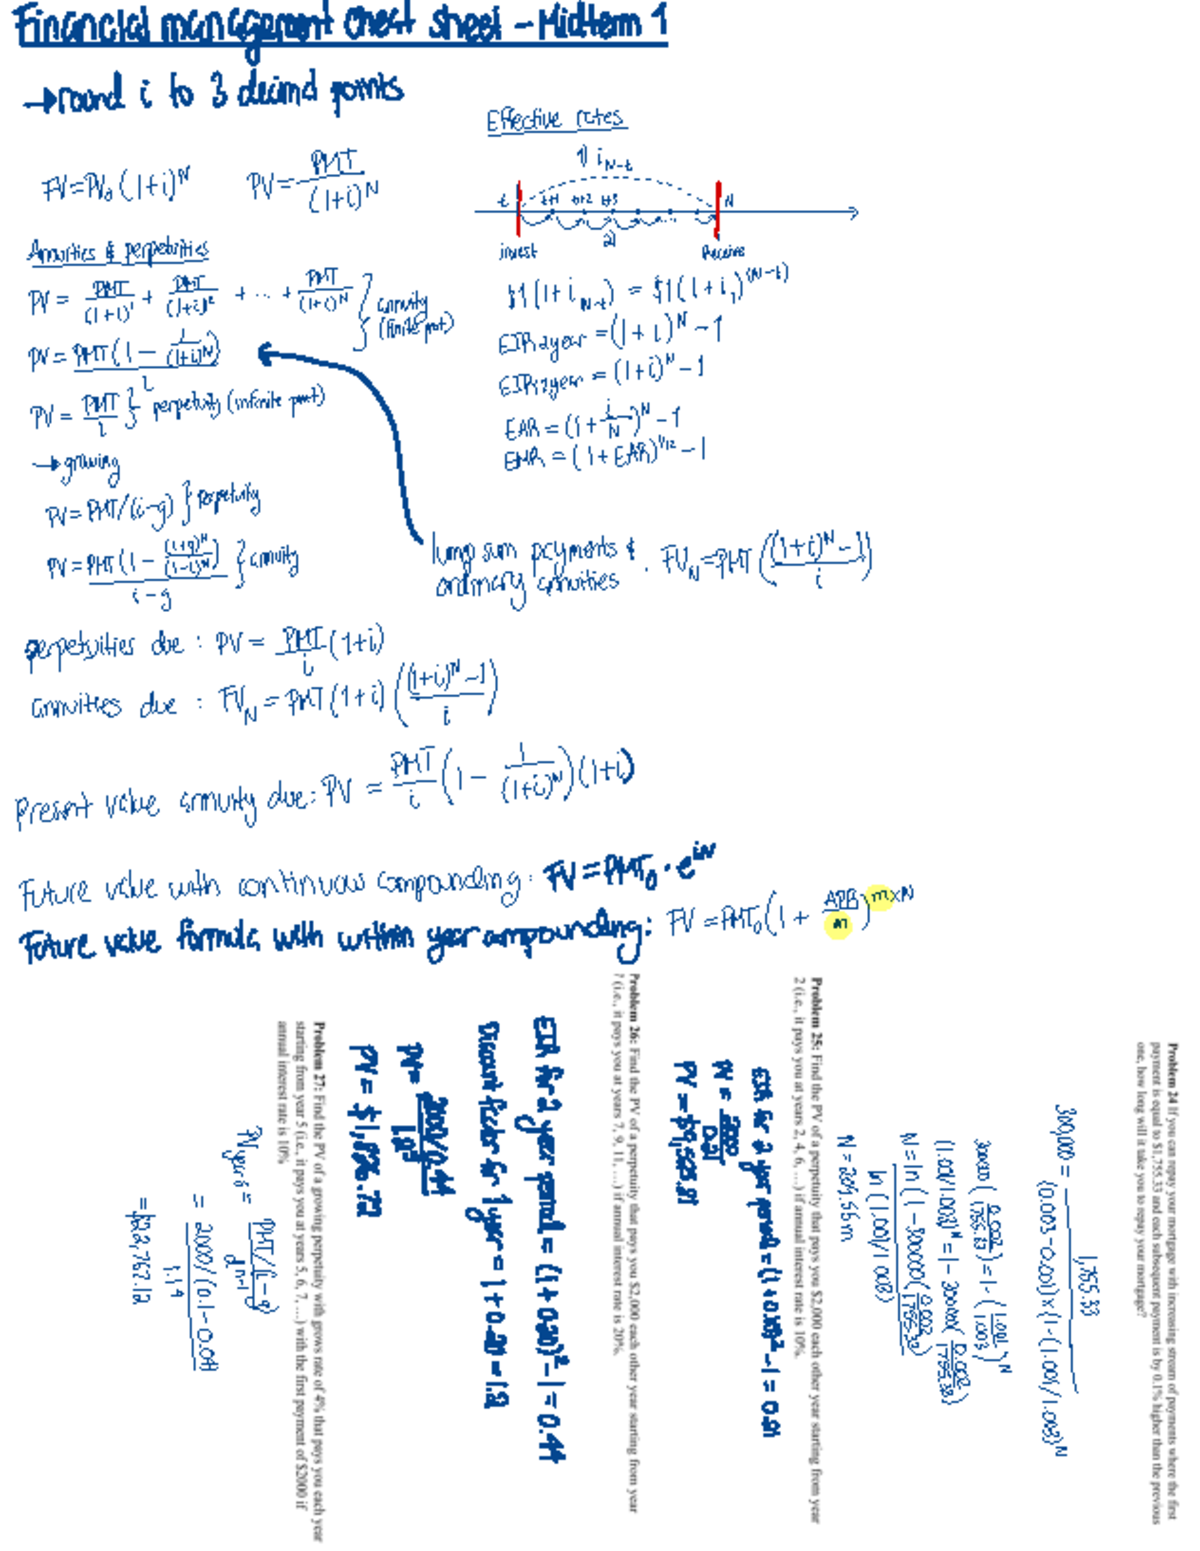 Financial management cheat sheet - Midterm 1
→ round i to 3 decimal points
FV = PV₀ (1+i)^N
PV = PMT / (1+i)^N
Annuities & perpetuities
PV = PMT/(1+i)^1 + PMT/(1+i)^2 + ... + PMT/(1+i)^N } annuity (finite pmt)
PV = PMT(1 - 1/(1+i)^N) / i
PV = PMT/i } perpetuity (infinite pmt)
→ growing
PV = PMT/(i-g) } perpetuity
PV = PMT(1 - (1+g)^N/(1-i)^N) / i-g } annuity
Effective rates
1) i N-t
t t+1 t+2 t+3 ... N
2)
invest Receive
$1(1+i N-t) = $1(1+i,)^(N-t)
EIR2year = (1+i)^N - 1
EIR12year = (1+i)^N - 1
EAR = (1 + i/N)^N - 1
EMR = (1+EAR)^1/12 - 1
lump sum payments &
ordinary annuities . FV_N = PMT((1+i)^N - 1 / i)
perpetuities due : PV = PMT/i (1+i)
annuities due : FV_N = PMT(1+i)((1+i)^N - 1 / i)
Present value annuity due: PV = PMT/i (1 - 1/(1+i)^N)(1+i)
Future value with continuous compounding: FV = PMT₀ · e^iN
Future value formula with within year compounding: FV = PMT₀(1 + APR/m)^m×N
Problem 24 If you can repay your mortgage with increasing stream of payments where the first
payment is equal to $1,755.33 and each subsequent payment is by 0.1% higher than the previous
one, how long will it take you to repay your mortgage?
300,000 = 1,755.33 / (0.003-0.001) × (1-(1.001/1.003)^N
300000 (0.002/1755.33) = 1 - (1.001/1.003)^N
(1.001/1.003)^N = 1 - 300000(0.002/1755.33)
N = ln(1 - 300000(0.002/1755.33)) / ln(1.001/1.003)
Problem 25: Find the PV of a perpetuity that pays you $2,000 each other year starting from year
2 (i.e., it pays you at years 2, 4, 6, …) if annual interest rate is 10%.
EIR for 2 year period = (1+0.10)^2 - 1 = 0.21
PV = 2000/0.21
PV = $9,523.81
Problem 26: Find the PV of a perpetuity that pays you $2,000 each other year starting from year
7 (i.e., it pays you at years 7, 9, 11, …) if annual interest rate is 20%.
EIR for 2 year period = (1+0.20)^2 - 1 = 0.44
Discount factor for 1 year = 1 + 0.20 = 1.2
PV = 2000/0.44
Problem 27: Find the PV of a growing perpetuity with grows rate of 4% that pays you each year
starting from year 5 (i.e., it pays you at years 5, 6, 7, …) with the first payment of $2000 if
annual interest rate is 10%
= 2000/(0.1-0.04) / 1.1^4
= $22,767.12